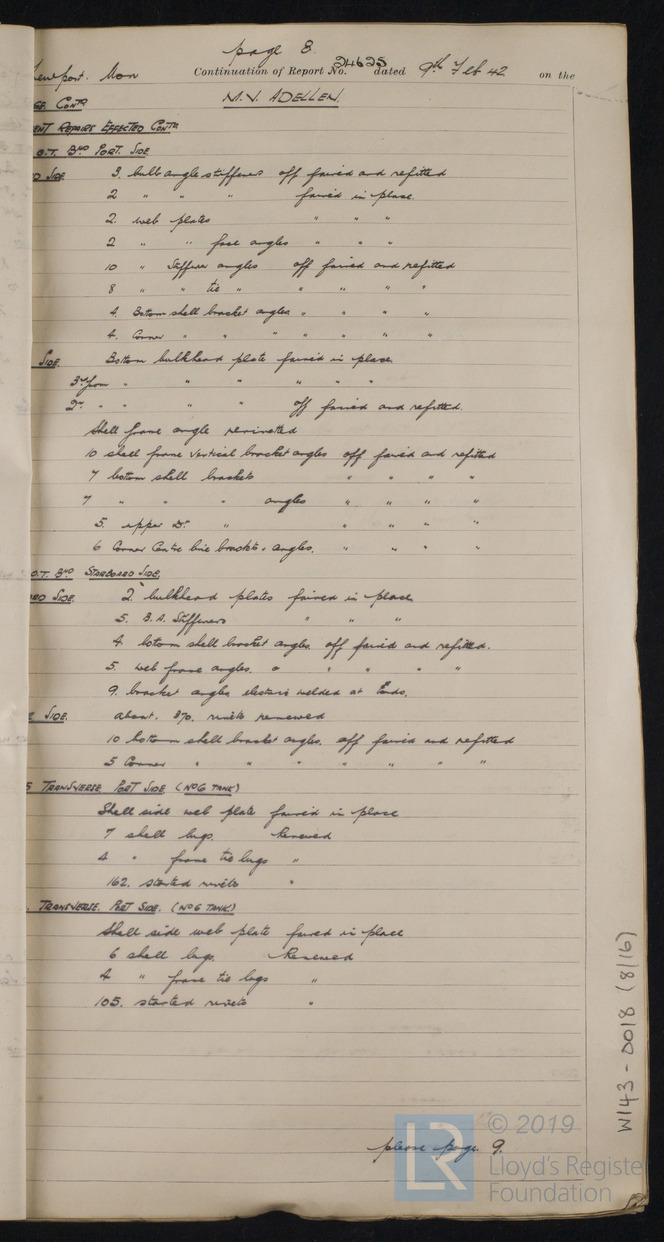 page 8.
Newport. Mon Continuation of Report No. 24625 dated 9th Feb 42 on the
GE. CONTD M.V. ADELLEN.
ENT REPAIRS EFFECTED CONTD
O.T. BHD PORT. SIDE
D SIDE 3. bulb angle stiffeners off faired and refitted
2 " " " faired in place.
2. web plates " " "
2 " " face angles " " "
10 " Stiffener angles off faired and refitted
8 " " tie " " " " "
4. Bottom shell bracket angles " " " "
4. Corner " " " " " " "
SIDE. Bottom bulkhead plate faired in place.
3rd from " " " " " "
2nd " " " " off faired and refitted.
Shell frame angle reriveted
10 shell frame vertical bracket angles off faired and refitted
7 bottom shell brackets " " " "
7 " " " angles " " " "
5. upper Dk " " " " "
6 Corner Centre line brackets & angles. " " " "
O.T. BHD STARBOARD SIDE.
ARD SIDE. 2. bulkhead plates faired in place.
5. B.A. Stiffeners " " "
4 bottom shell bracket angles. off faired and refitted.
5. web frame angles. " " " " "
9. bracket angles electric welded at Ends.
E SIDE. about. 870. rivets renewed
10 bottom shell bracket angles. off faired and refitted
5 Corner " " " " " " "
5 TRANSVERSE PORT SIDE (NO6 TANK)
Shell side web plate faired in place
7 shell lugs. Renewed
4 " frame tie lugs "
162. started rivets "
. TRANSVERSE. PORT SIDE. (NO6 TANK)
Shell side web plate faired in place
6 shell lugs. Renewed
4 " frame tie lugs "
105. started rivets "
please page 9.
W143-0018 (8/16)
LR
© 2019
Lloyd's Register
Foundation